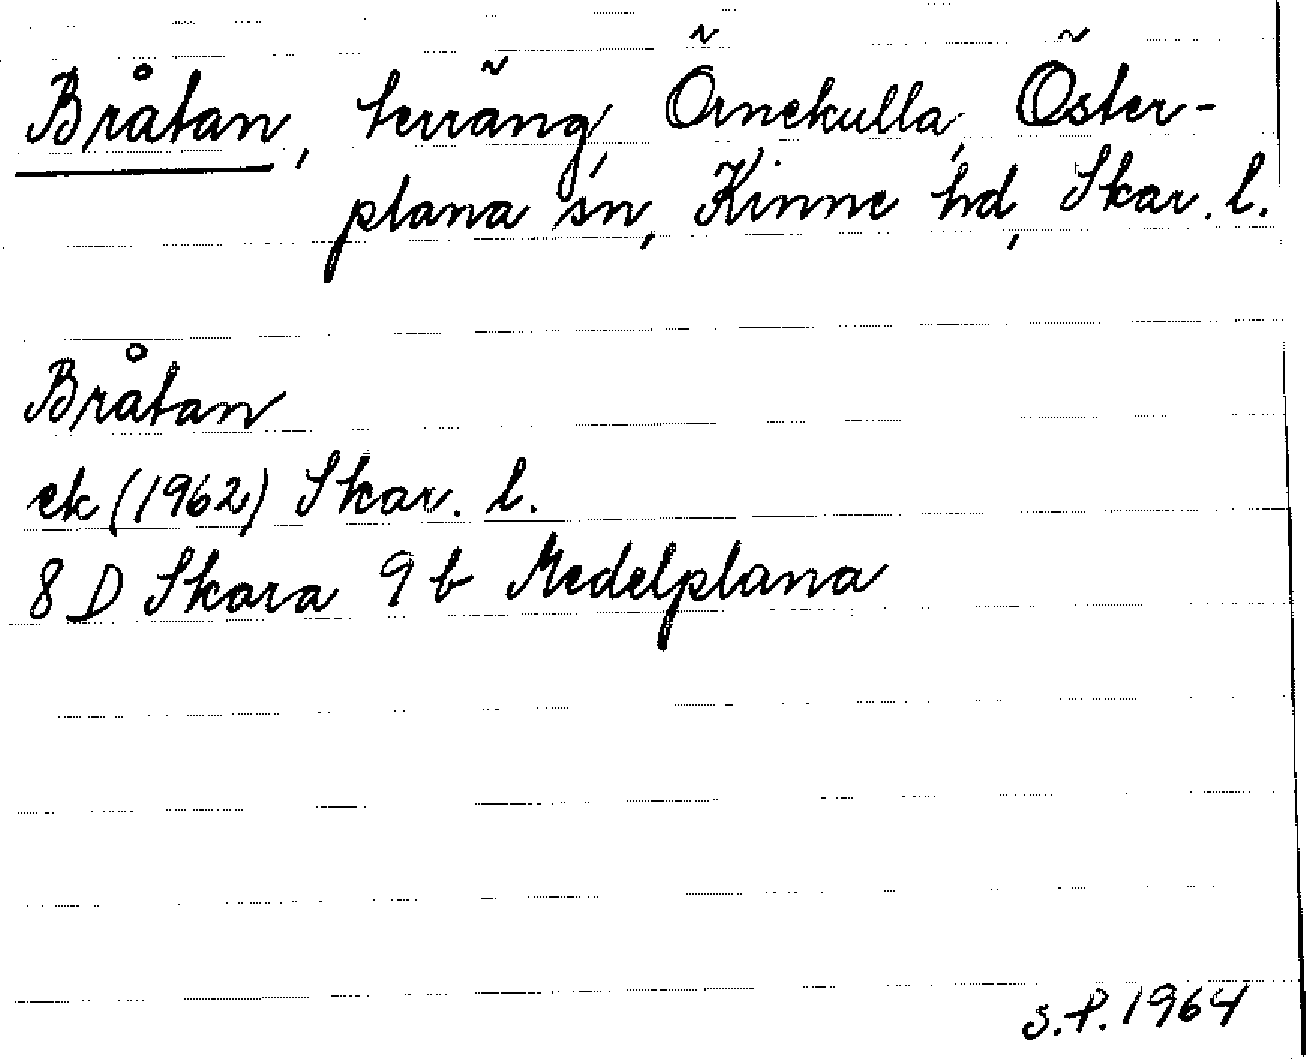 Bråtan, terräng, Örnekulla, Öster-
plana sn, Kinne hd, Skar. l.
Bråtan
ek (1962) Skar. l.
8 D Skara 9 b Medelplana
S.P. 1964